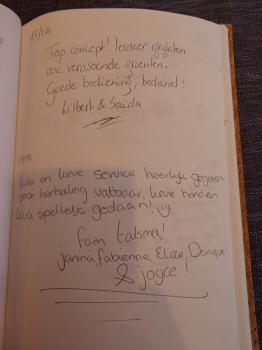 15/12
Top concept! lekker gegeten
ook verrassende groenten.
Goede bediening, bedankt!
Wilbert & Saida
leuke en lieve service heerlijk gegeten
voor herhaling vatbaar, lieve honden
leuk spelletje gedaan!
fam talsma!
Janina, fabienne, Elize,
& joyce!